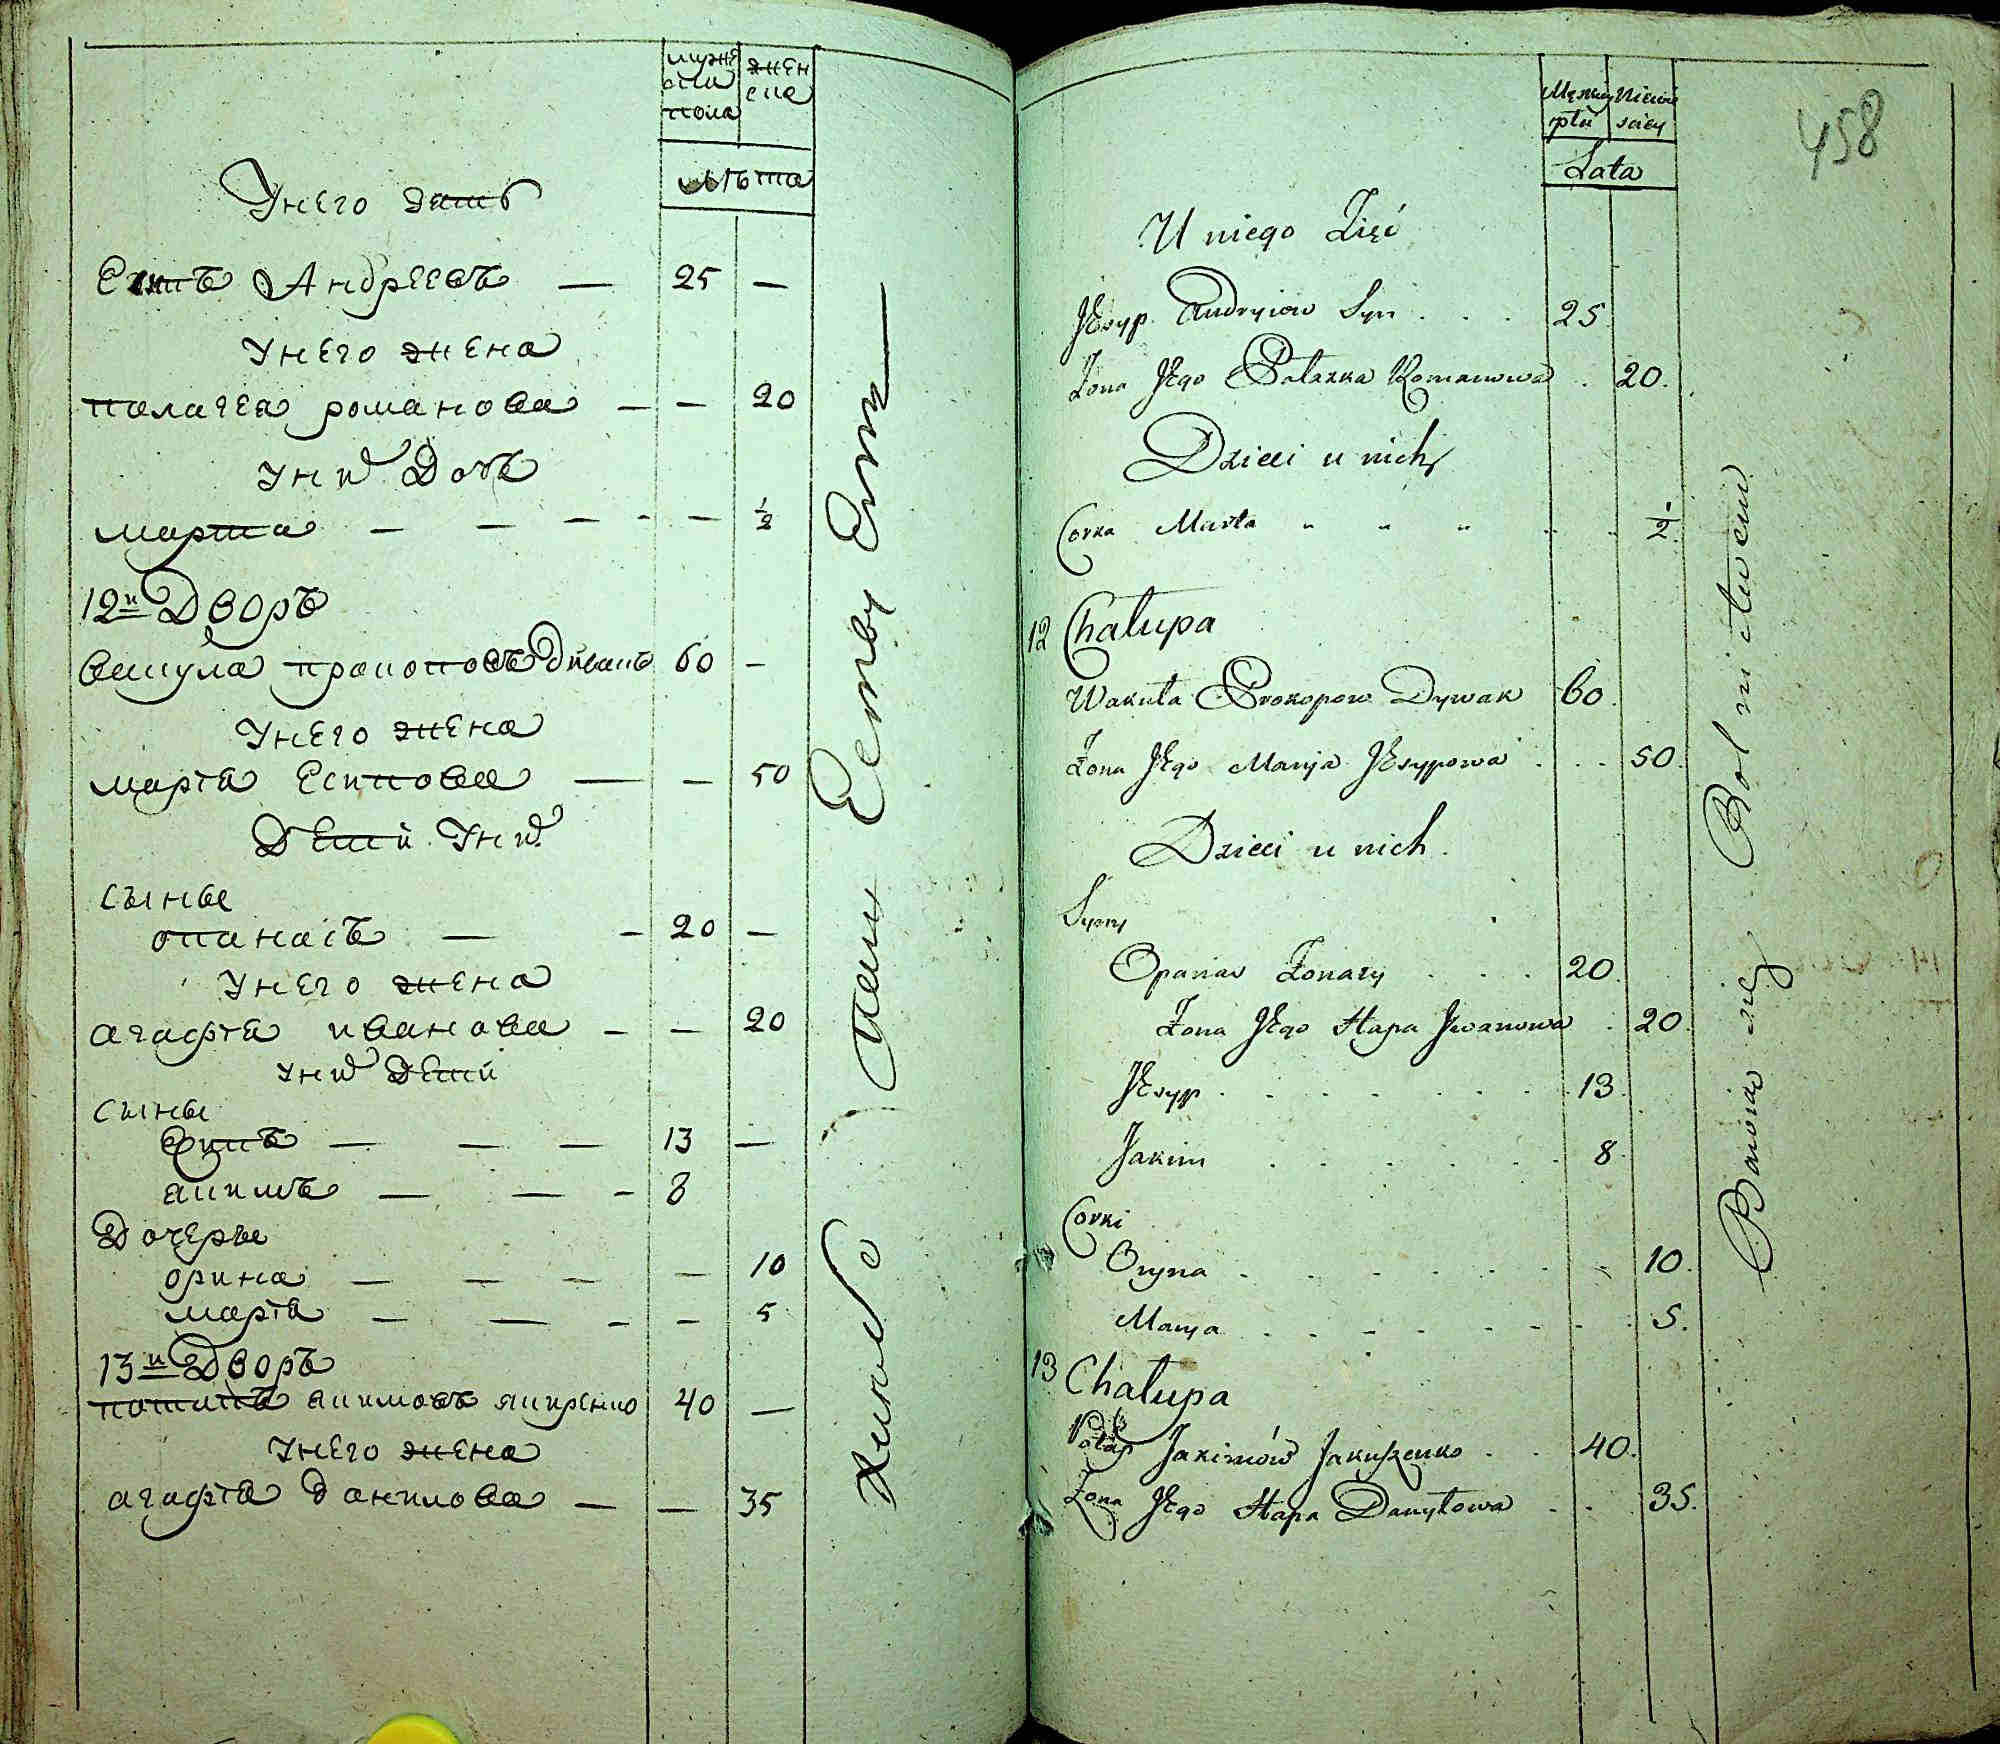 мужеска пола
женска
лѣта
У него зять
Есипъ Андреевъ — 25 —
У него жена
палагея романова — — 20
У них Дочь
марта — — — - — ½
12й Дворъ
вакула прокоповъ дывакъ 60 —
У него жена
марья Есипова — — 50
Дети У них
сыны
опанасъ — - 20 —
У него жена
агафья иванова — — 20
У них Дети
сыны
Есипъ — — — 13 —
акимъ — — - 8
Дочеры
орина — — — — 10
марья — — - — 5
13й Дворъ
потапъ акимовъ якиренко 40 —
У него жена
агафья данилова — — 35
Męzkiey płci
Niewiesciey
Lata
458
U niego Zięć
JEsyp Andryiow Syn . . . 25.
Zona JEgo Palazka Romanowa . 20.
Dzieci u nich
Corka Marta " " " . . ½.
12 Chałupa
Wakuła Prokopow Dywak 60.
Zona JEgo Marya JEsypowa . . . 50.
Dzieci u nich.
Syny
Opanas Zonaty . . . 20.
Zona JEgo Hapa Jwanowa . 20.
JEsyp . . . . . . . 13.
Jakim . . . . . . 8.
Corki
Oryna . . . . . . . . 10.
Marya . . . . . . . . 5.
13 Chałupa
Potap Jakimów Jakurzenko . . 40.
Zona JEgo Hapa Danyłowa . . 35.